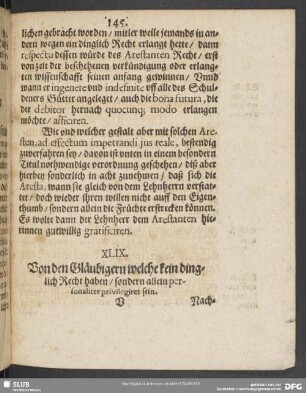 145.
lichen gebracht worden / mitler weile jemands in an-
dern wegen ein dinglich Recht erlangt hette / dann
respectu dessen würde des Arestanten Recht / erst
von zeit der beschehenen verkündigung oder erlang-
ten wissenschafft seinen anfang gewinnen / Vnnd
wann er in genere vnd indefinite vff alle des Schul-
deners Gütter angeleget / auch die bona futura, die
der debitor hernach quocunq; modo erlangen
möchte / afficiren.
Wie vnd welcher gestalt aber mit solchen Are-
sten, ad effectum impetrandi jus reale, bestendig
zuverfahren sey / davon ist vnten in einem besondern
Titul nothwendige verordnung geschehen / diß aber
hierbey sonderlich in acht zunehmen / daß sich die
Aresta, wann sie gleich von dem Lehnherrn verstat-
tet / doch wieder ihren willen nicht auff den Eigen-
thumb / sondern allein die Früchte erstrecken können.
Es wolte dann der Lehnherr dem Arestanten hie-
rinnen gutwillig gratificiren.
XLIX.
Von den Gläubigern welche kein ding-
lich Recht haben / sondern allein per-
sonaliter privilegiret sein.
V
Nach-
SLUB
DFG